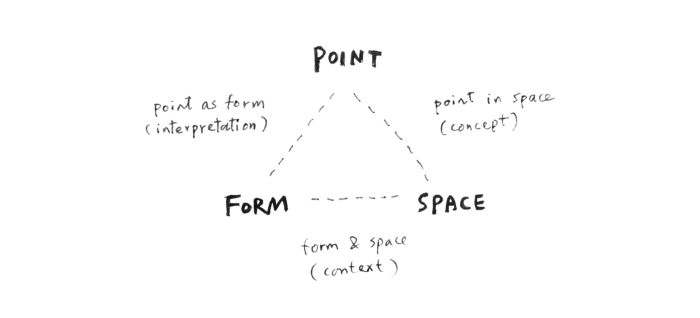 POINT
point as form
(interpretation)
point in space
(concept)
FORM
SPACE
form & space
(context)